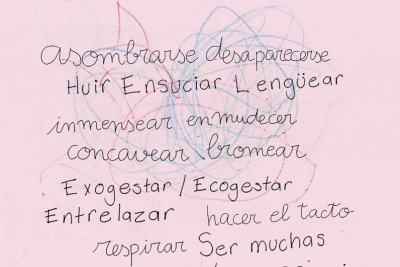 asombrarse desaparecerse
Huir Ensuciar Lengüear
inmensear enmudecer
concavear bromear
Exogestar / Ecogestar
Entrelazar hacer el tacto
respirar Ser muchas